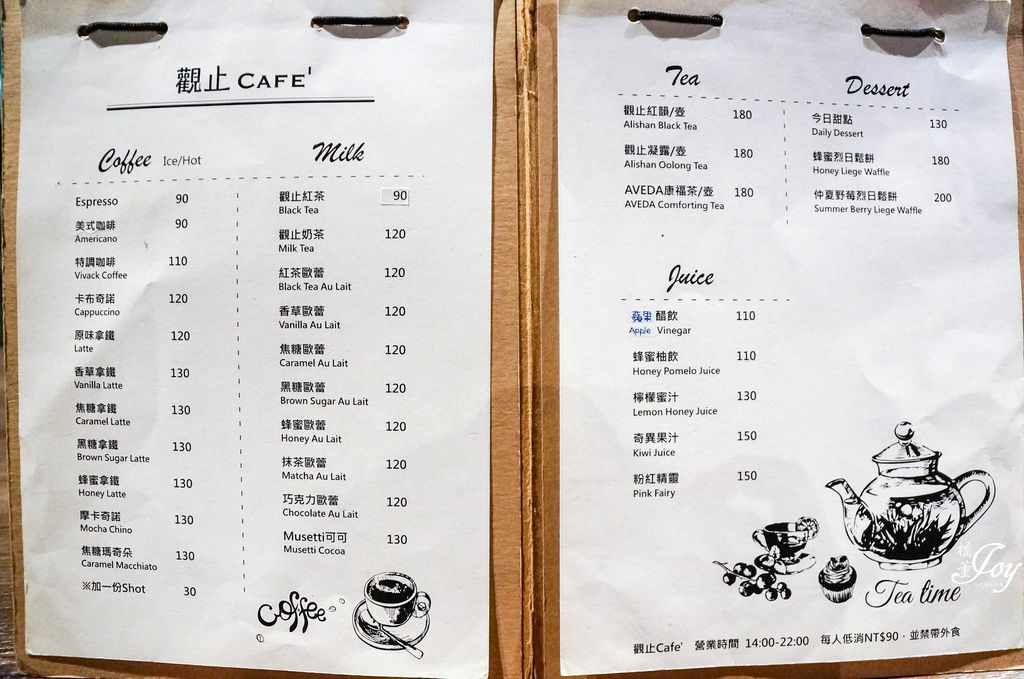 觀止 CAFE'
Coffee Ice/Hot
Espresso 90
美式咖啡 90
Americano
特調咖啡 110
Vivack Coffee
卡布奇諾 120
Cappuccino
原味拿鐵 120
Latte
香草拿鐵 130
Vanilla Latte
焦糖拿鐵 130
Caramel Latte
黑糖拿鐵 130
Brown Sugar Latte
蜂蜜拿鐵 130
Honey Latte
摩卡奇諾 130
Mocha Chino
焦糖瑪奇朵 130
Caramel Macchiato
※加一份Shot 30
Milk
觀止紅茶 90
Black Tea
觀止奶茶 120
Milk Tea
紅茶歐蕾 120
Black Tea Au Lait
香草歐蕾 120
Vanilla Au Lait
焦糖歐蕾 120
Caramel Au Lait
黑糖歐蕾 120
Brown Sugar Au Lait
蜂蜜歐蕾 120
Honey Au Lait
抹茶歐蕾 120
Matcha Au Lait
巧克力歐蕾 120
Chocolate Au Lait
Musetti可可 130
Musetti Cocoa
Coffee
Tea
觀止紅韻/壺 180
Alishan Black Tea
觀止凝露/壺 180
Alishan Oolong Tea
AVEDA康福茶/壺 180
AVEDA Comforting Tea
Dessert
今日甜點 130
Daily Dessert
蜂蜜烈日鬆餅 180
Honey Liege Waffle
仲夏野莓烈日鬆餅 200
Summer Berry Liege Waffle
Juice
蘋果 醋飲 110
Apple Vinegar
蜂蜜柚飲 110
Honey Pomelo Juice
檸檬蜜汁 130
Lemon Honey Juice
奇異果汁 150
Kiwi Juice
粉紅精靈 150
Pink Fairy
Joy
Tea time
觀止Cafe' 營業時間 14:00-22:00 每人低消NT$90，並禁帶外食